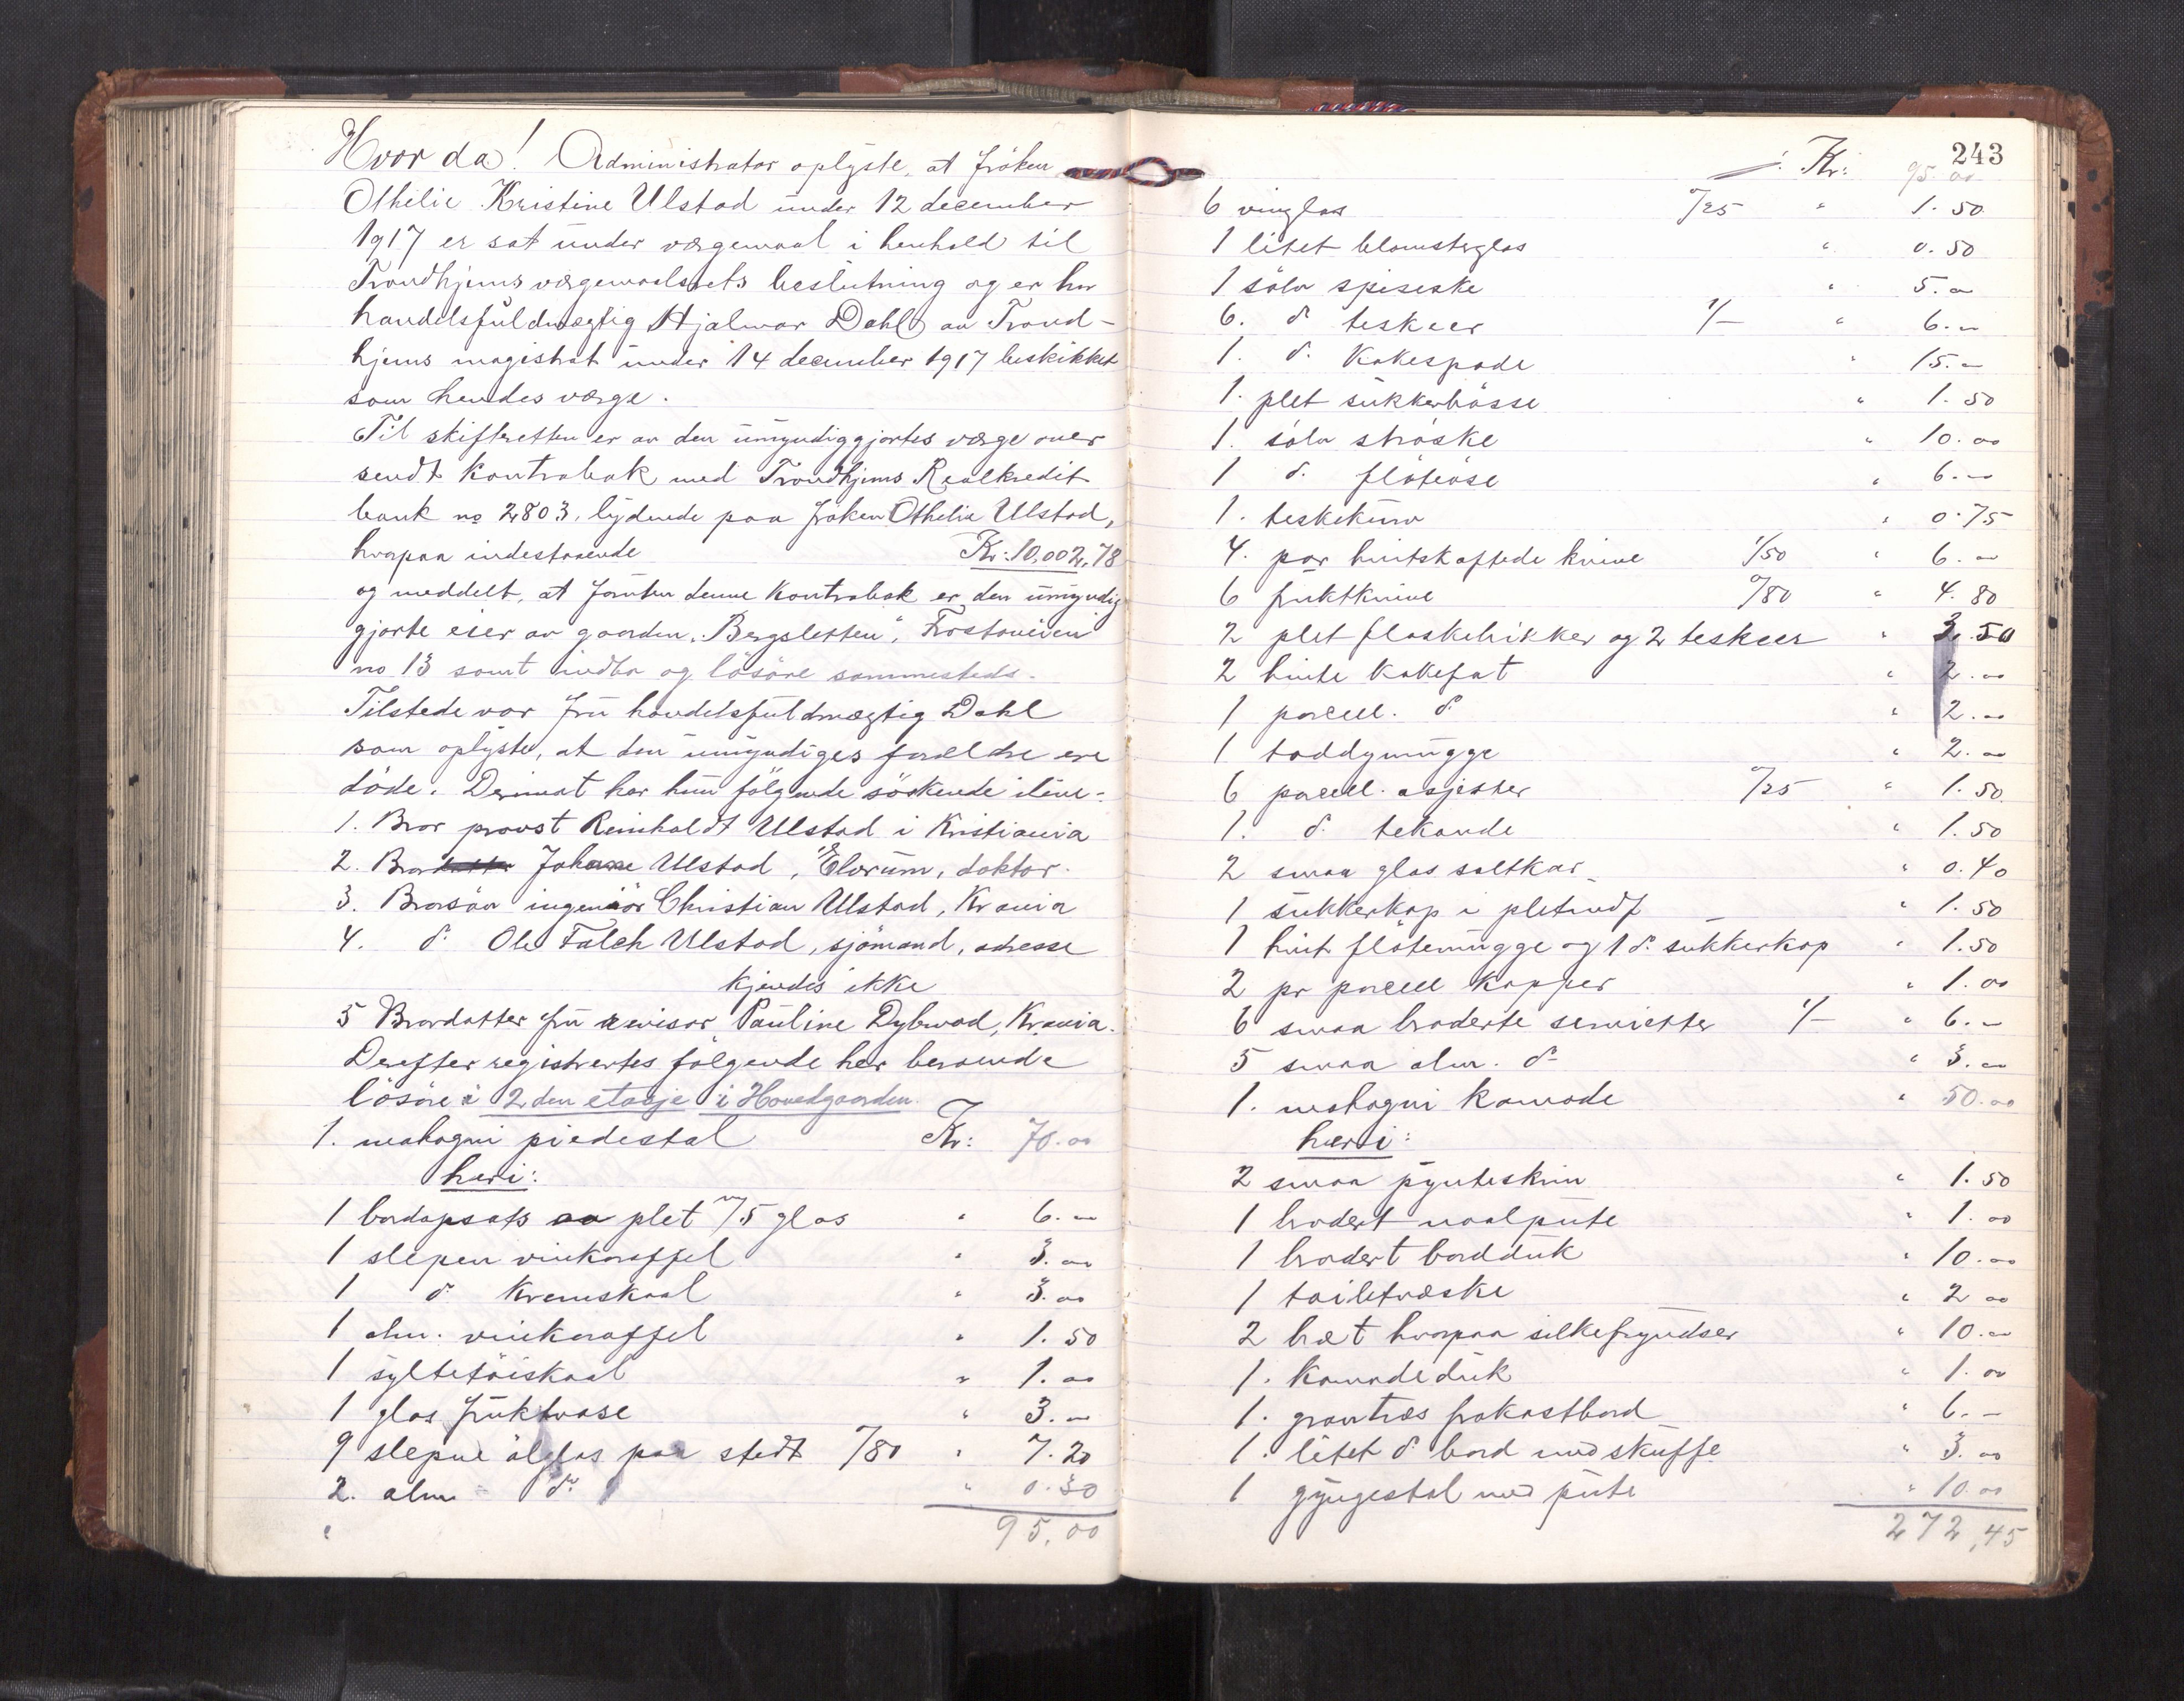 Hvor da! Administrator oplyste, at frøken
Othelie Kristine Ulstad under 12 december
1917 er sat under værgemaal i henhold til
Trondhjems værgemaalsrets beslutning og er hr
handelsfuldmægtig Hjalmar Dahl av Trond-
hjems magistrat under 14 december 1917 beskikket
som hendes værge.
Til skifteretten er av den umyndiggjortes værge over
sendt Kontrabok med Trondhjems Realkredit
bank no 2803, lydende paa frøken Othelie Ulstad,
hvorpaa indestaaende Kr: 10,002,78
og meddelt, at foruten denne Kontrabok er den umyndig
gjorte eier av gaarden "Bergsletten", Frostaveien
no 13 samt indbo og løsøre sammesteds.
Tilstede var fru handelsfuldmægtig Dahl
som oplyste, at den umyndiges forældre ere
døde. Derimot har hun følgende søskende ilive:
1. Bror provst Reinholdt Ulstad i Kristiania
2. Bror Johan Ulstad, Elverum, doktor.
3. Brorsøn ingeniør Christian Ulstad, Krania
4. d. Ole Falch Ulstad, sjømand, adresse
kjendes ikke
5 Brordatter fru revisor Pauline Dybwad, Krania.
Derefter registrertes følgende her beroende
løsøre i 2den etasje i Hovedgaarden.
1. mahogni piedestal Kr: 70.00
heri:
1 bordopsats av plet m/5 glas " 6.00
1 slepen vinkaraffel " 3.00
1 d. Kremskaal " 3.00
1 alm. vinkaraffel " 1.50
1 syltetøiskaal " 1.00
1 glas fruktvase " 3.00
9 slepne ølglas paa stett /80 " 7.20
2. alm d. " 0.30
95,00
243
Kr: 95.00
6 vinglas 0/25 " 1.50
1 litet blomsterglas " 0.50
1 sølv spiseske " 5.00
6. d. teskeer 1/- " 6.00
1. d. Kakespade " 15.00
1. plet sukkerbøsse " 1.50
1. sølv strøske " 10.00
1 d. fløteøse " 6.00
1. teskekurv " 0.75
4. par hvitskaftede knive 1/50 " 6.00
6 fruktknive 0/80 " 4.80
2 plet flaskebrikker og 2 teskeer " 3.50
2 hvite Kakefat " 2.00
1 porcell. d. " 2.00
1 toddymugge " 2.00
6 porcell. asjetter 0/25 " 1.50
1. d. tekande " 1.50
2 smaa glas saltkar " 0.40
1 sukkerkop i pletindf " 1.50
1 hvit fløtemugge og 1 d. sukkerkop " 1.50
2 pr porcell Kopper " 1.00
6 smaa broderte servietter 1/- " 6.00
5 smaa alm. d. " 3.00
1. mahogni Komode " 50.00
heri:
2 smaa pynteskrin " 1.50
1 brodert naalpute " 1.00
1 brodert bordduk " 10.00
1 toiletvæske " 2.00
2 bræt hvorpaa silkefryndser " 10.00
1. Komodeduk " 1.00
1. grantræs frokostbord " 6.-
1. litet d. bord med skuffe " 3.00
1 gyngestol med pute " 10.00
272,45